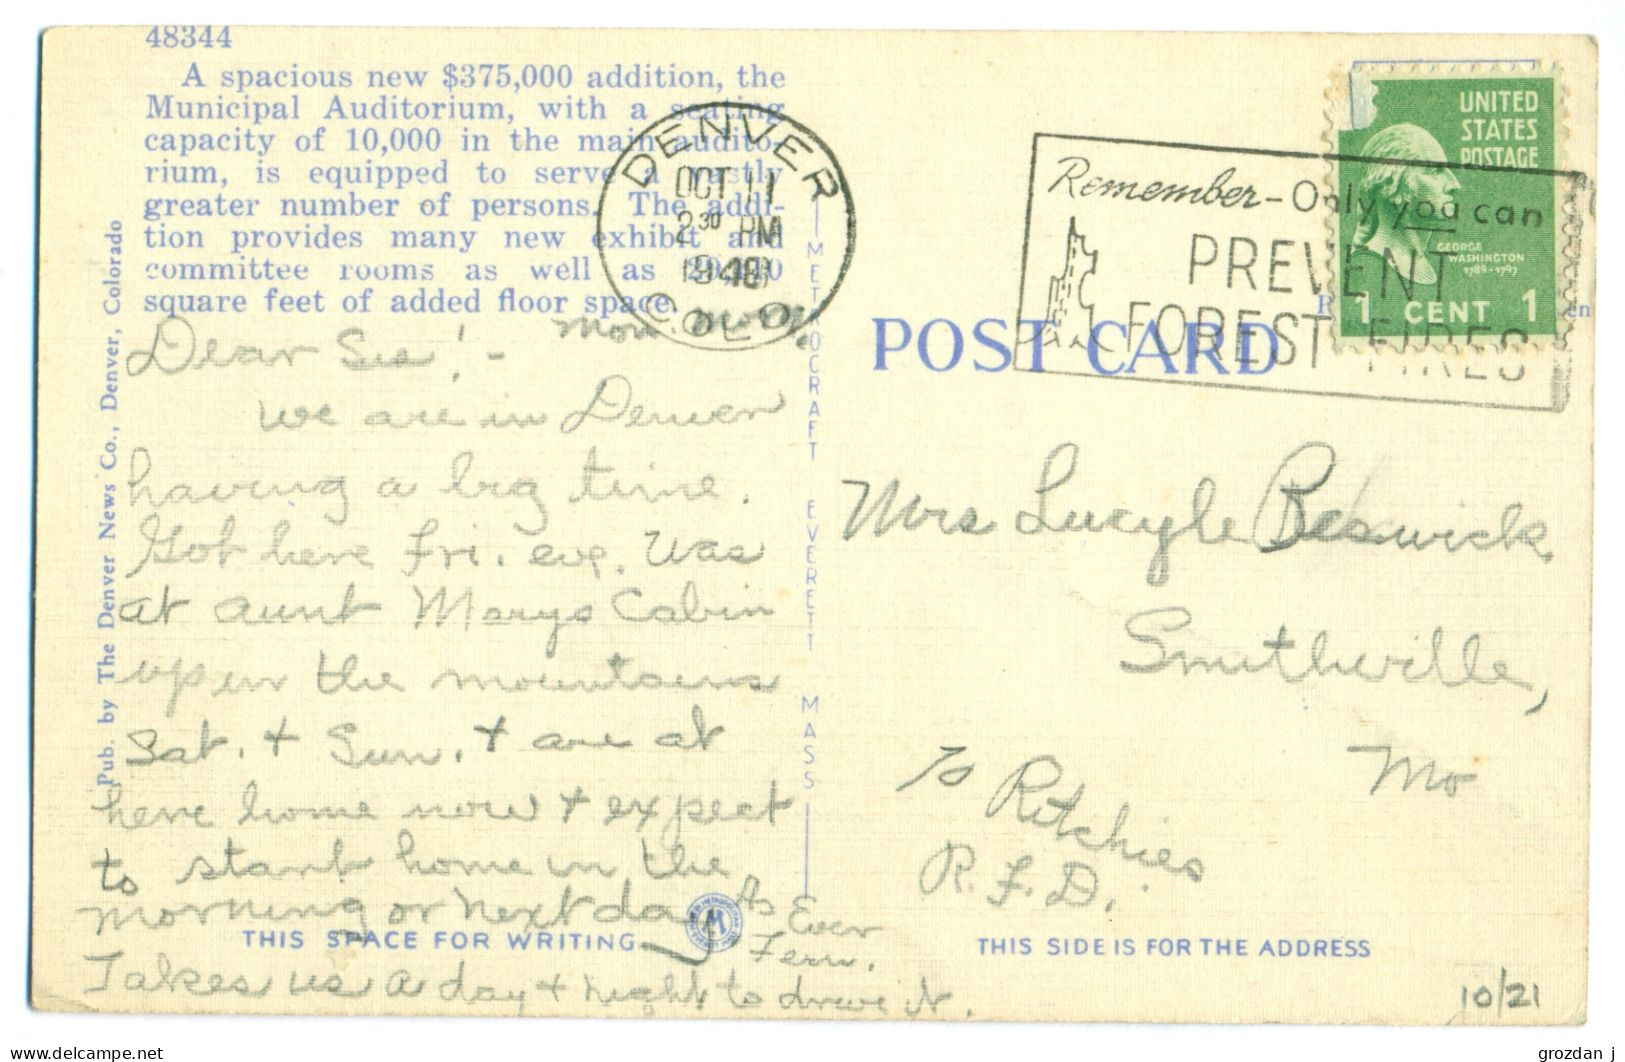 48344
A spacious new $375,000 addition, the
Municipal Auditorium, with a seating
capacity of 10,000 in the main audito-
rium, is equipped to serve a vastly
greater number of persons. The addi-
tion provides many new exhibit and
committee rooms as well as
square feet of added floor space.
Pub. by The Denver News Co., Denver, Colorado
DENVER
OCT 11
2 30 PM
1948
COLO.
Remember - Only you can
PREVENT
FOREST FIRES
UNITED
STATES
POSTAGE
GEORGE
WASHINGTON
1789-1797
1 CENT 1
POST CARD
METROCRAFT EVERETT MASS
Mon.
Dear Sis! -
We are in Denver
having a big time.
Got here Fri. eve. Was
at aunt Marys Cabin
up in the mountains
Sat. + Sun. + are at
here home now + expect
to start home in the
morning or next day
Takes us a day + night to drive it.
As Ever
Fern.
Mrs Lucyle Beswick
Smithville,
Mo
To Ritchies
R.F.D.
THIS SPACE FOR WRITING
THIS SIDE IS FOR THE ADDRESS
10/21
grozdan j